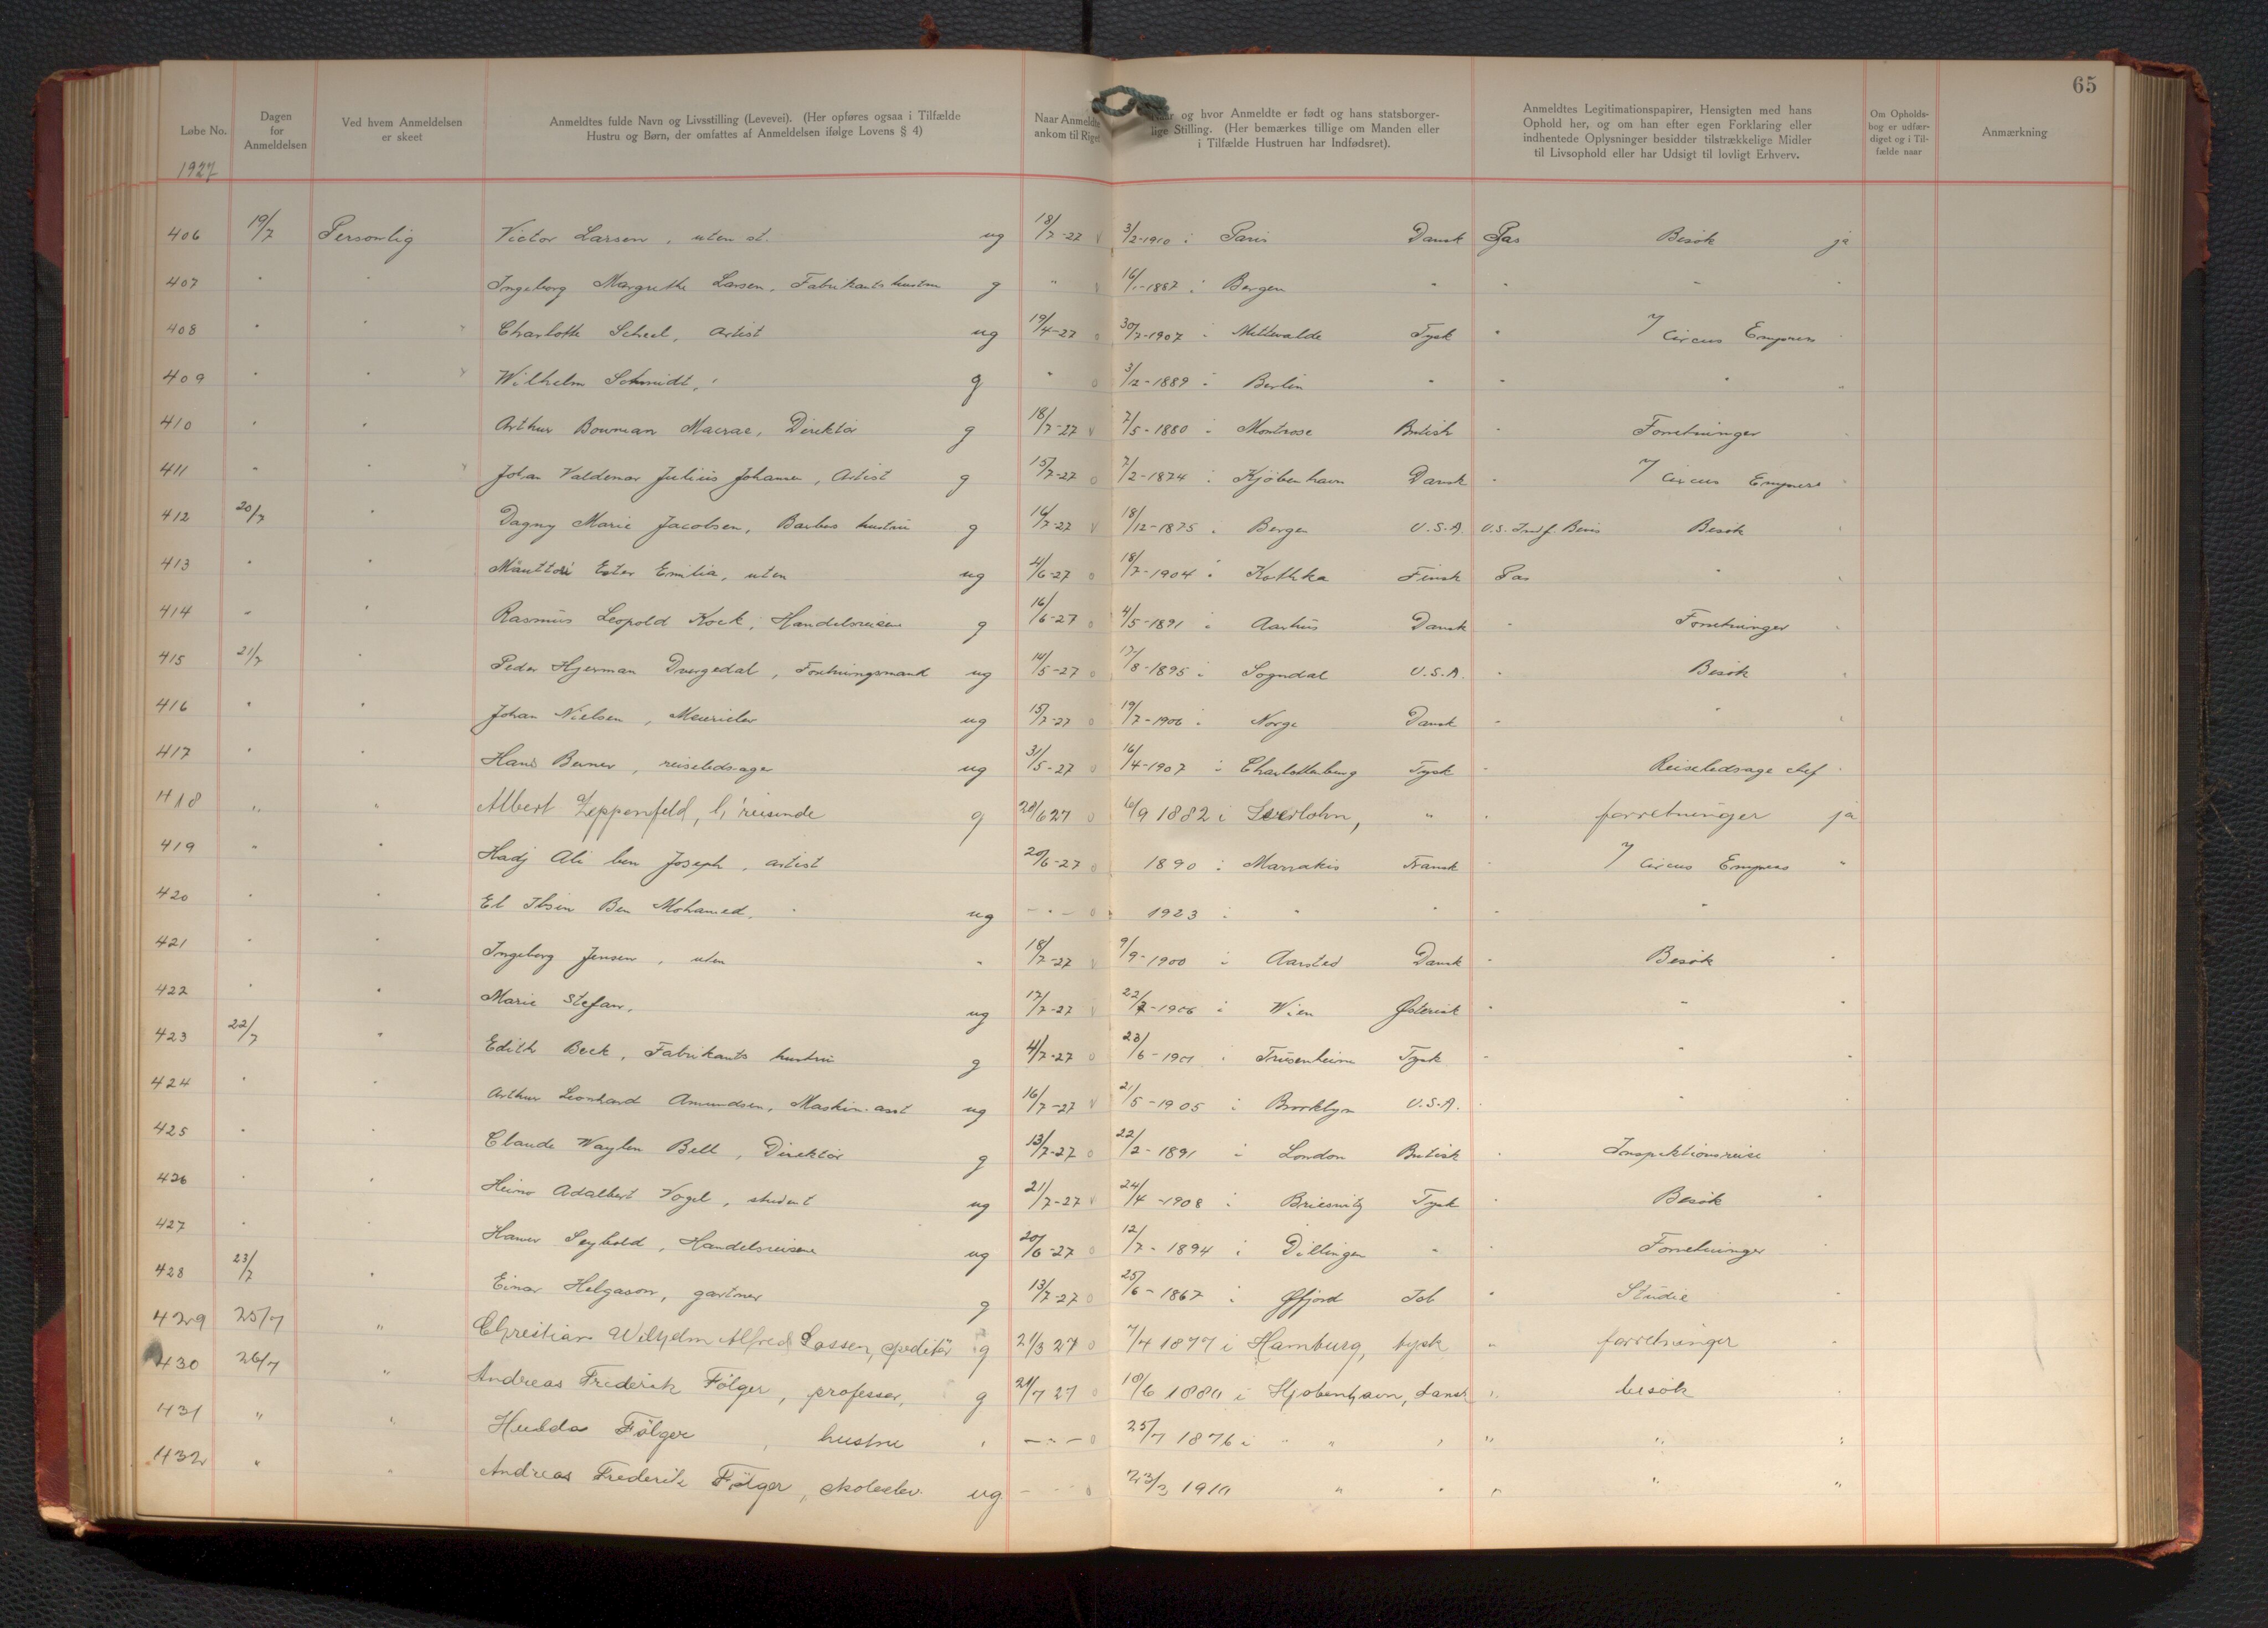 65
Løbe No. Dagen for Anmeldelsen Ved hvem Anmeldelsen er skeet Anmeldtes fulde Navn og Livsstilling (Levevei). (Her opføres ogsaa i Tilfælde Hustru og Børn, der omfattes af Anmeldelsen ifølge Lovens § 4) Naar Anmeldte ankom til Riget og hvor Anmeldte er født og hans statsborgerlige Stilling. (Her bemærkes tillige om Manden eller i Tilfælde Hustruen har Indfødsret). Anmeldtes Legitimationspapirer, Hensigten med hans Ophold her, og om han efter egen Forklaring eller indhentede Oplysninger besidder tilstrækkelige Midler til Livsophold eller har Udsigt til lovligt Erhverv. Om Opholdsbog er udfærdiget og i Tilfælde naar Anmærkning
1927
406 19/7 Personlig Victor Larsen, uten st. ug 18/7-27 v 3/2-1910 i Paris Dansk Pas Besøk ja
407 " " Ingeborg Margrethe Larsen, Fabrikants hustru g " v 16/1-1887 i Bergen " " " "
408 " " Charlotte Scheel, Artist ug 19/4-27 o 30/7-1907 i Mittewalde Tysk " Circus Empress "
409 " " Wilhelm Schmidt, " g " o 3/2-1889 i Berlin " " " "
410 " " Arthur Bowman Macrae, Direktør g 18/7-27 v 7/5-1880 i Montrose Britisk " Forretninger "
411 " " Johan Valdemar Julius Johansen, Artist g 15/7-27 o 7/2-1874 i Kjøbenhavn Dansk " Circus Empress "
412 20/7 " Dagny Marie Jacobsen, Barbers hustru g 16/7-27 v 18/12-1875 i Bergen U.S.A. U.S. Indf. Bevis Besøk "
413 " " Mänttäri Ester Emilia, uten ug 4/6-27 o 18/7-1904 i Kothka Finsk Pas " "
414 " " Rasmus Leopold Kock, Handelsreisen g 16/6-27 o 4/5-1891 i Aarhus Dansk " Forretninger "
415 21/7 " Peder Hjerman Dvergedal, Forretningsmand ug 14/5-27 o 17/8-1895 i Sogndal U.S.A. " Besøk "
416 " " Johan Nielsen, Meierielev ug 15/7-27 o 19/7-1906 i Norge Dansk " " "
417 " " Hans Berner, reiseledsager ug 31/5-27 o 16/4-1907 i Charlottenburg Tysk " Reiseledsage chef "
418 " " Albert Zeppenfeld, reisende g 20/6 27 o 10/9 1882 i Iserlohn, " " forretninger ja
419 " " Hadj Ali ben Joseph, artist 20/6-27 o 1890 i Marrakis Fransk " Circus Empress "
420 " " El Ibsin Ben Mohamed, " ug - " - o 1923 i " " " "
421 " " Ingeborg Jensen, uten " 18/7-27 v 9/9-1900 i Aarsted Dansk " Besøk "
422 " " Marie Stefan, ug 17/7-27 v 22/7-1906 i Wien Østerisk " " "
423 22/7 " Edith Beck, Fabrikants hustru g 4/7-27 o 23/6-1901 i Trusenheim Tysk " " "
424 " " Arthur Leonhard Amundsen, Maskin.asst ug 16/7-27 v 21/5-1905 i Brooklyn U.S.A. " " "
425 " " Claude Waylen Bell, Direktør g 13/7-27 o 22/2-1891 i London Britisk " Inspektionsreise "
426 " " Heino Adalbert Vogel, student ug 21/7-27 v 24/4-1908 i Briesnitz Tysk " Besøk "
427 " Seybold, Handelsreisene ug 20/6-27 o 12/7-1894 i Dillingen " " Forretninger "
428 23/7 " Einar Helgason, gartner g 13/7-27 o 25/6-1867 i Øfjord Isl " Studie "
429 25/7 " Christian Wilhelm Alfred Lassen, speditør g 21/3 27 o 7/4 1877 i Hamburg, tysk " forretninger "
430 26/7 " Andreas Frederik Fölger, professor, g 24/7 27 o 18/6 1880 i Kjøbenhavn, dansk " besøk "
431 " " Hulda Fölger, hustru " - " - o 25/7 1876 i " " " " "
432 " " Andreas Frederik Fölger, skoleelev. ug - " - o 23/3 1910 " " " " "